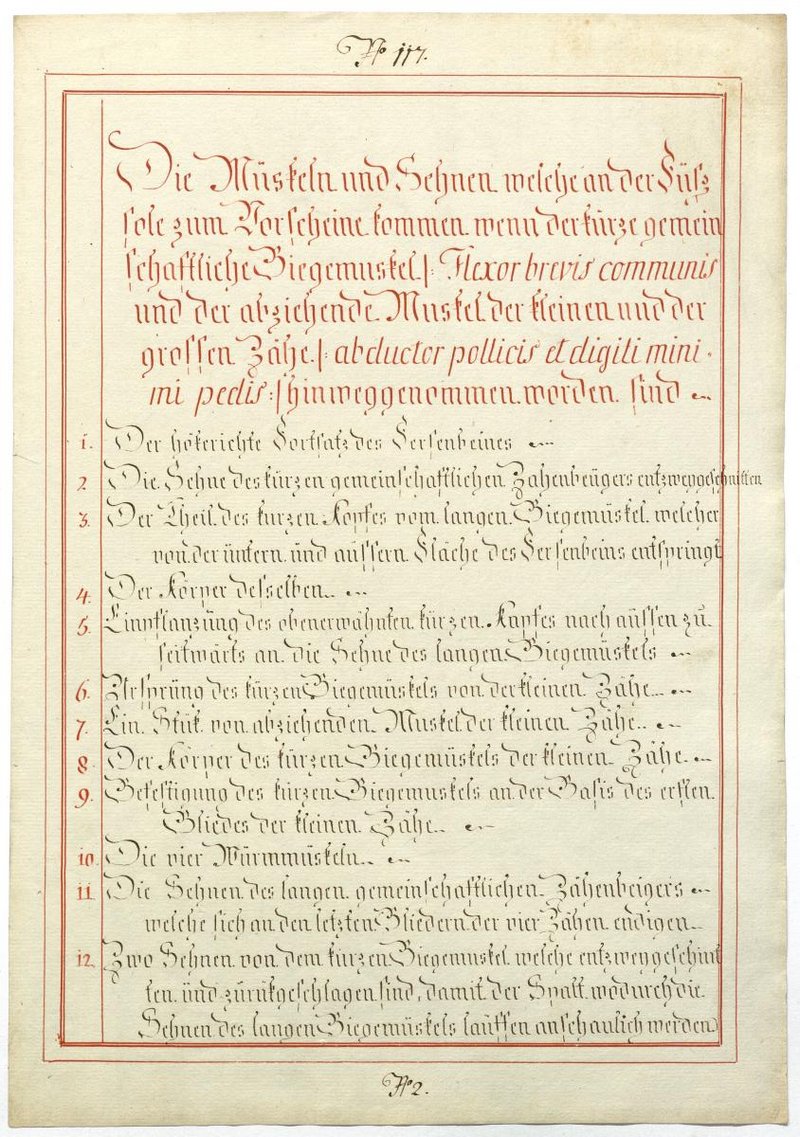 No 117.
Die Müskeln und Sehnen welche an der Füsz
sole zum Vorscheine kommen wenn der kürze gemein
schaftliche Biegemuskel /: Flexor brevis communis
und der abziehende Muskel der kleinen und der
grossen Zähe /: abductor pollicis et digiti mini-
mi pedis :/ hinweggenommen worden sind
1. Der hökerichte Fortsatz des Fersenbeines
2. Die Sehne des kürzen gemeinschaftlichen Zahenbeügers entzweygeschnitten
3. Der Theil des kurzen Kopfes vom langen Biegemüskel welcher
von der üntern ünd aüssern Fläche des Fersenbeins entspringt
4. Der Körper desselben
5. Einpflanzüng des obenerwähnten kürzen Kopfes nach aüssen zü
seitwärts an die Sehne des langen Biegemüskels
6. Ursprüng des kürzen Biegemüskels von der kleinen Zähe
7. Ein Stük von abziehenden Muskel der kleinen Zähe
8. Der Körper des kürzen Biegemüskels der kleinen Zähe
9. Befestigung des kürzen Biegemuskels an der Basis des ersten
Gliedes der kleinen Zähe
10. Die vier Würmmüskeln
11. Die Sehnen des langen gemeinschaftlichen Zähenbeigers
welche sich an den letzten Gliedern der vier Zähen endigen
12. Zwo Sehnen von dem kürzen Biegemuskel welche entzweygeschnit
ten ünd zürükgeschlagen sind, damit der Spalt wodurch die
Sehnen des langen Biegemüskels laüffen anschaulich werden
No 2.